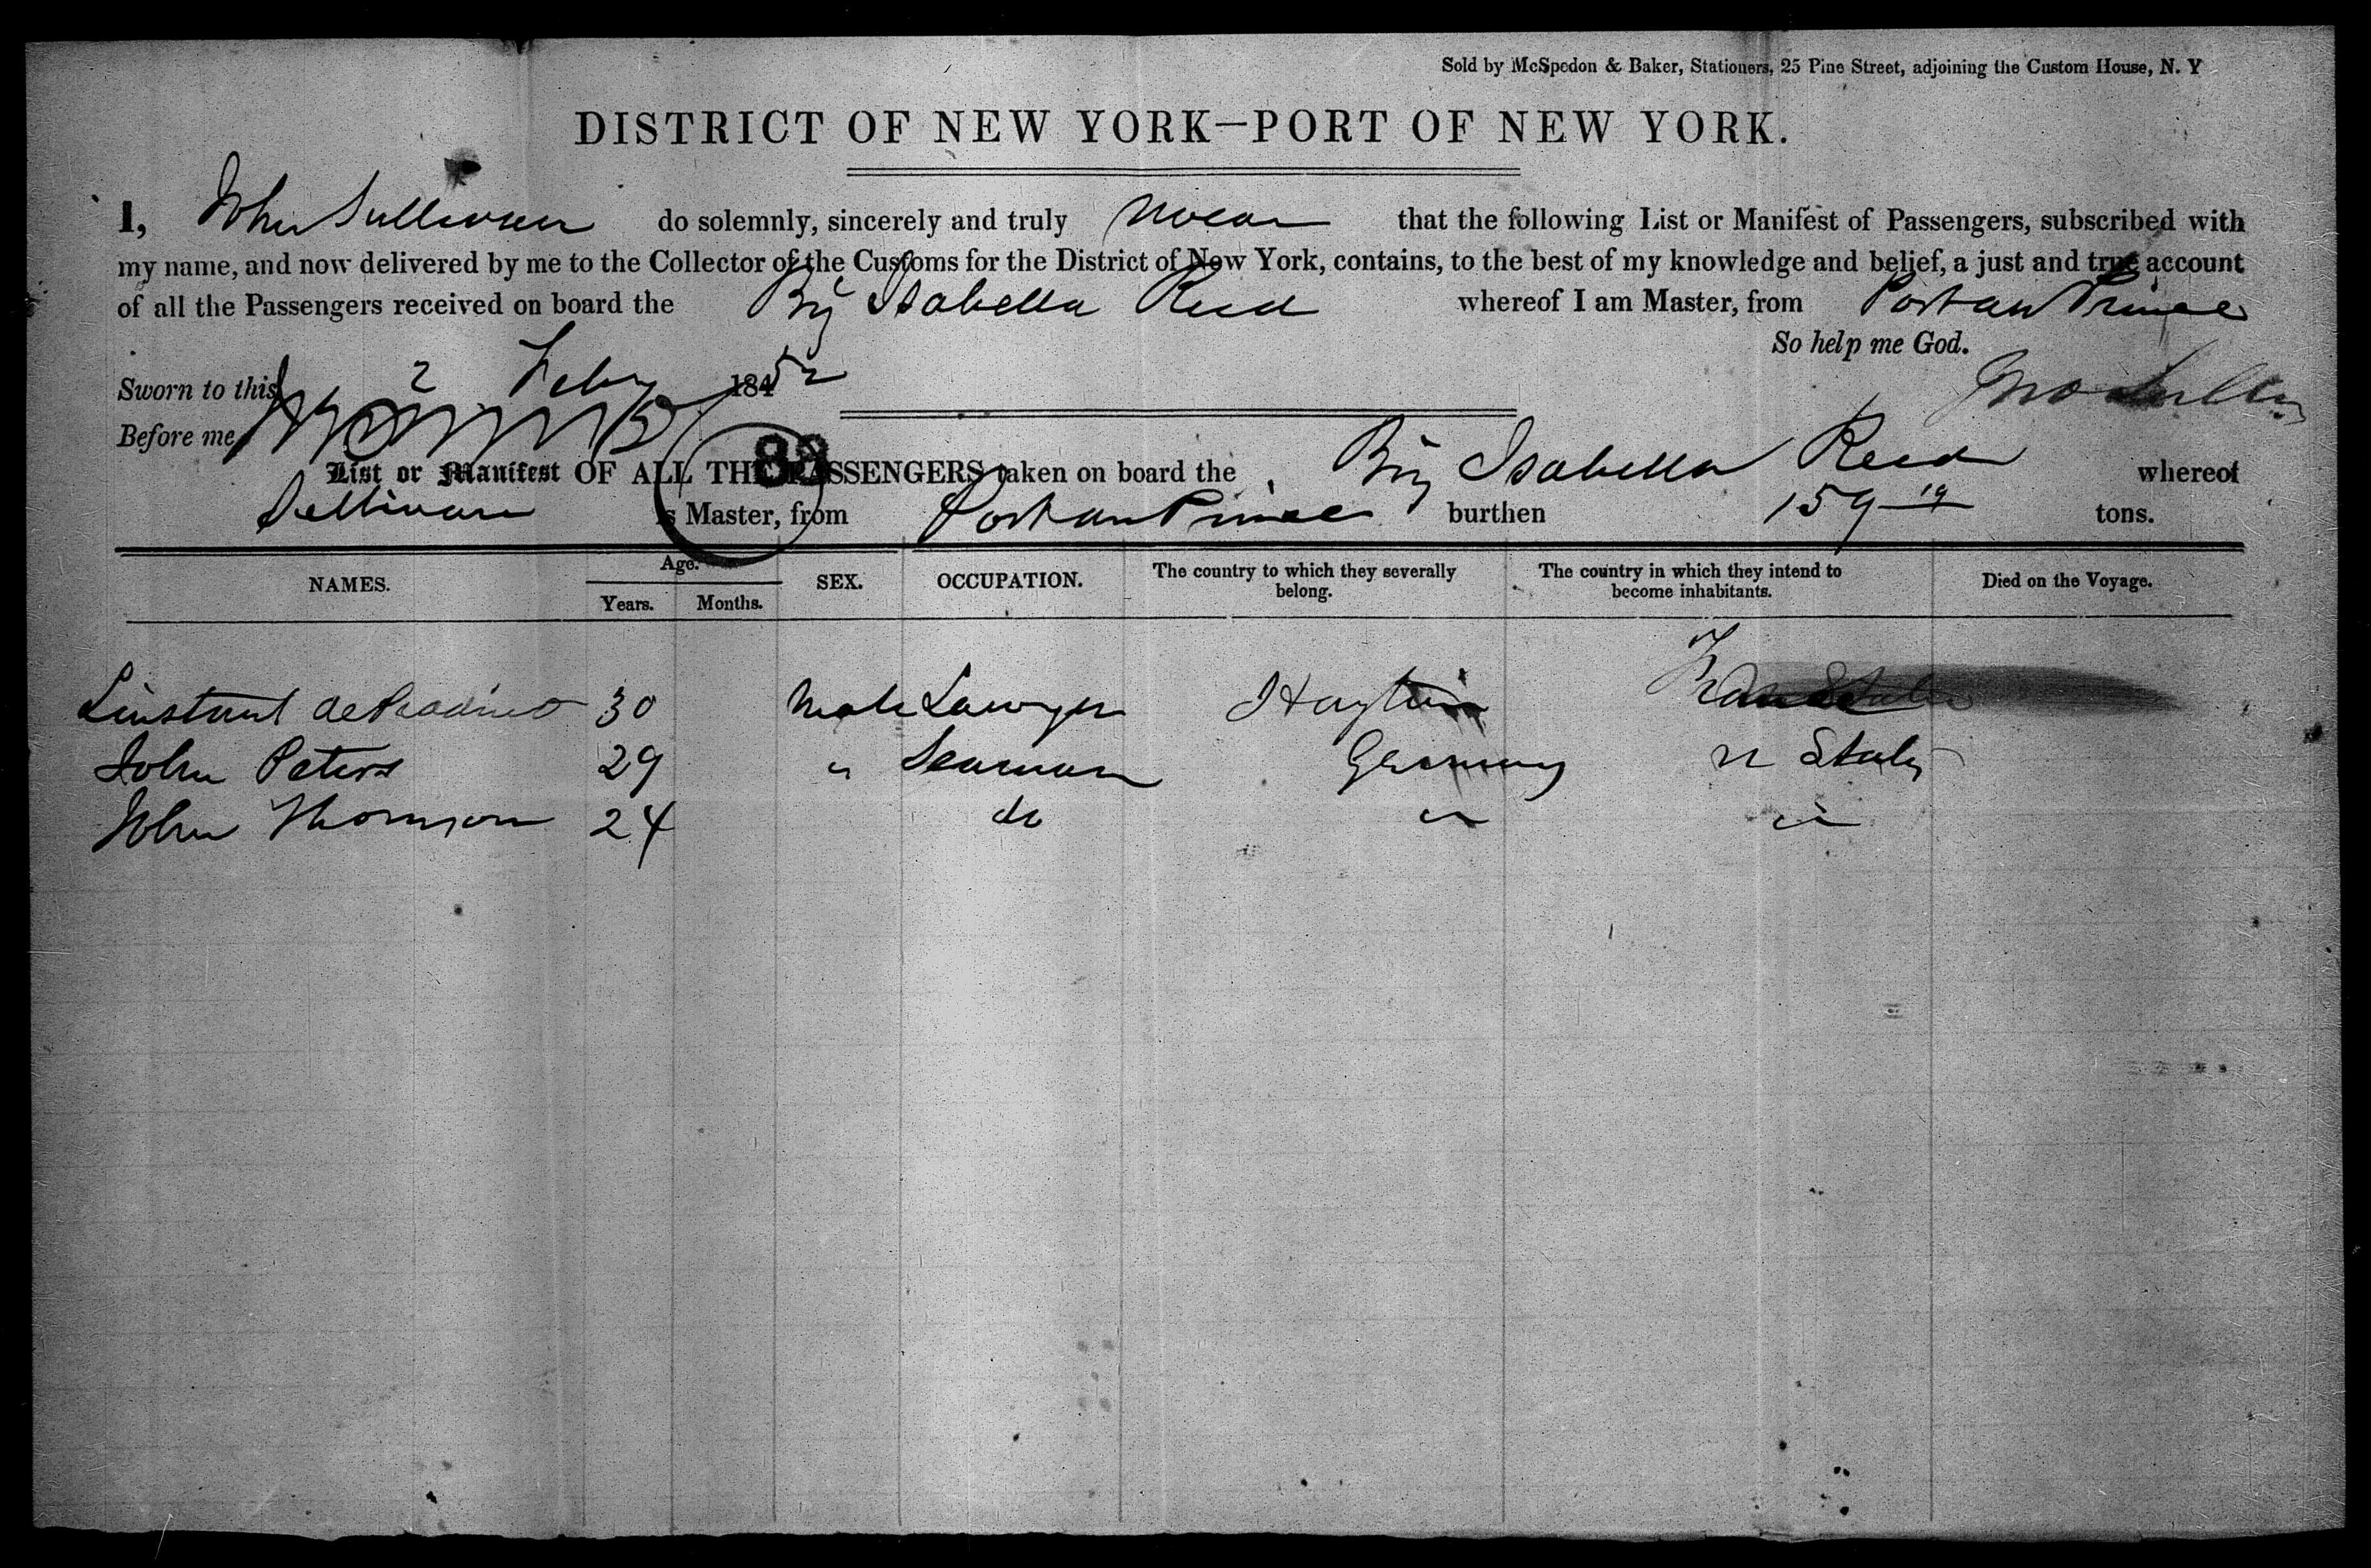 Sold by McSpedon & Baker, Stationers, 25 Pine Street, adjoining the Custom House, N. Y
DISTRICT OF NEW YORK—PORT OF NEW YORK.
I, John Sullivan do solemnly, sincerely and truly swear that the following List or Manifest of Passengers, subscribed with
my name, and now delivered by me to the Collector of the Customs for the District of New York, contains, to the best of my knowledge and belief, a just and true account
of all the Passengers received on board the Brig Isabella Reed whereof I am Master, from Port au Prince
So help me God.
Sworn to this 2 Feby 1852
Jno Sullivan
Before me,
83
List or Manifest OF ALL THE PASSENGERS taken on board the Brig Isabella Reed whereof
Sullivan is Master, from Port au Prince burthen 159 19 tons.
NAMES. Age. Years. Months. SEX. OCCUPATION. The country to which they severally belong. The country in which they intend to become inhabitants. Died on the Voyage.
Linstant 30 Male Lawyer Hayti
John Peters 29 " Seaman Germany U States
John Thomson 24 do " "